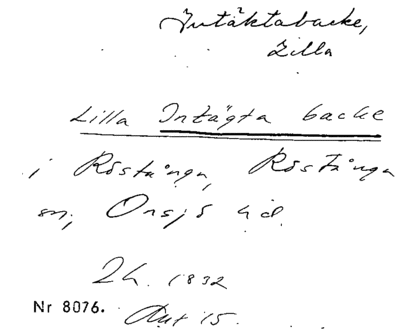 Intäktabacke,
Lilla
Lilla Intägta backe
i Röstånga, Röstånga
sn, Onsjö hd.
Lh. 1832
Nr 8076. Akt 15.